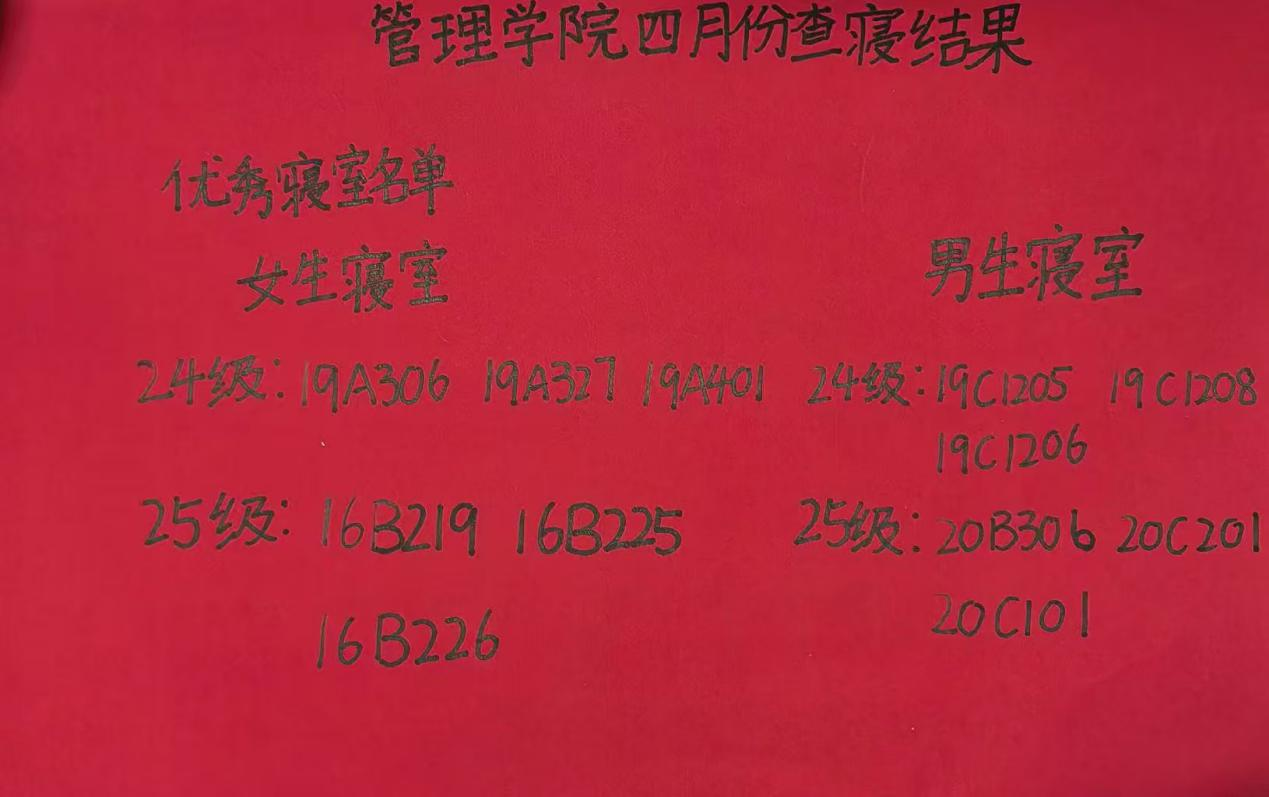 管理学院四月份查寝结果
优秀寝室名单
女生寝室 男生寝室
24级：19A306 19A327 19A401 24级：19C1205 19C1208
19C1206
25级：16B219 16B225 25级：20B306 20C201
16B226 20C101